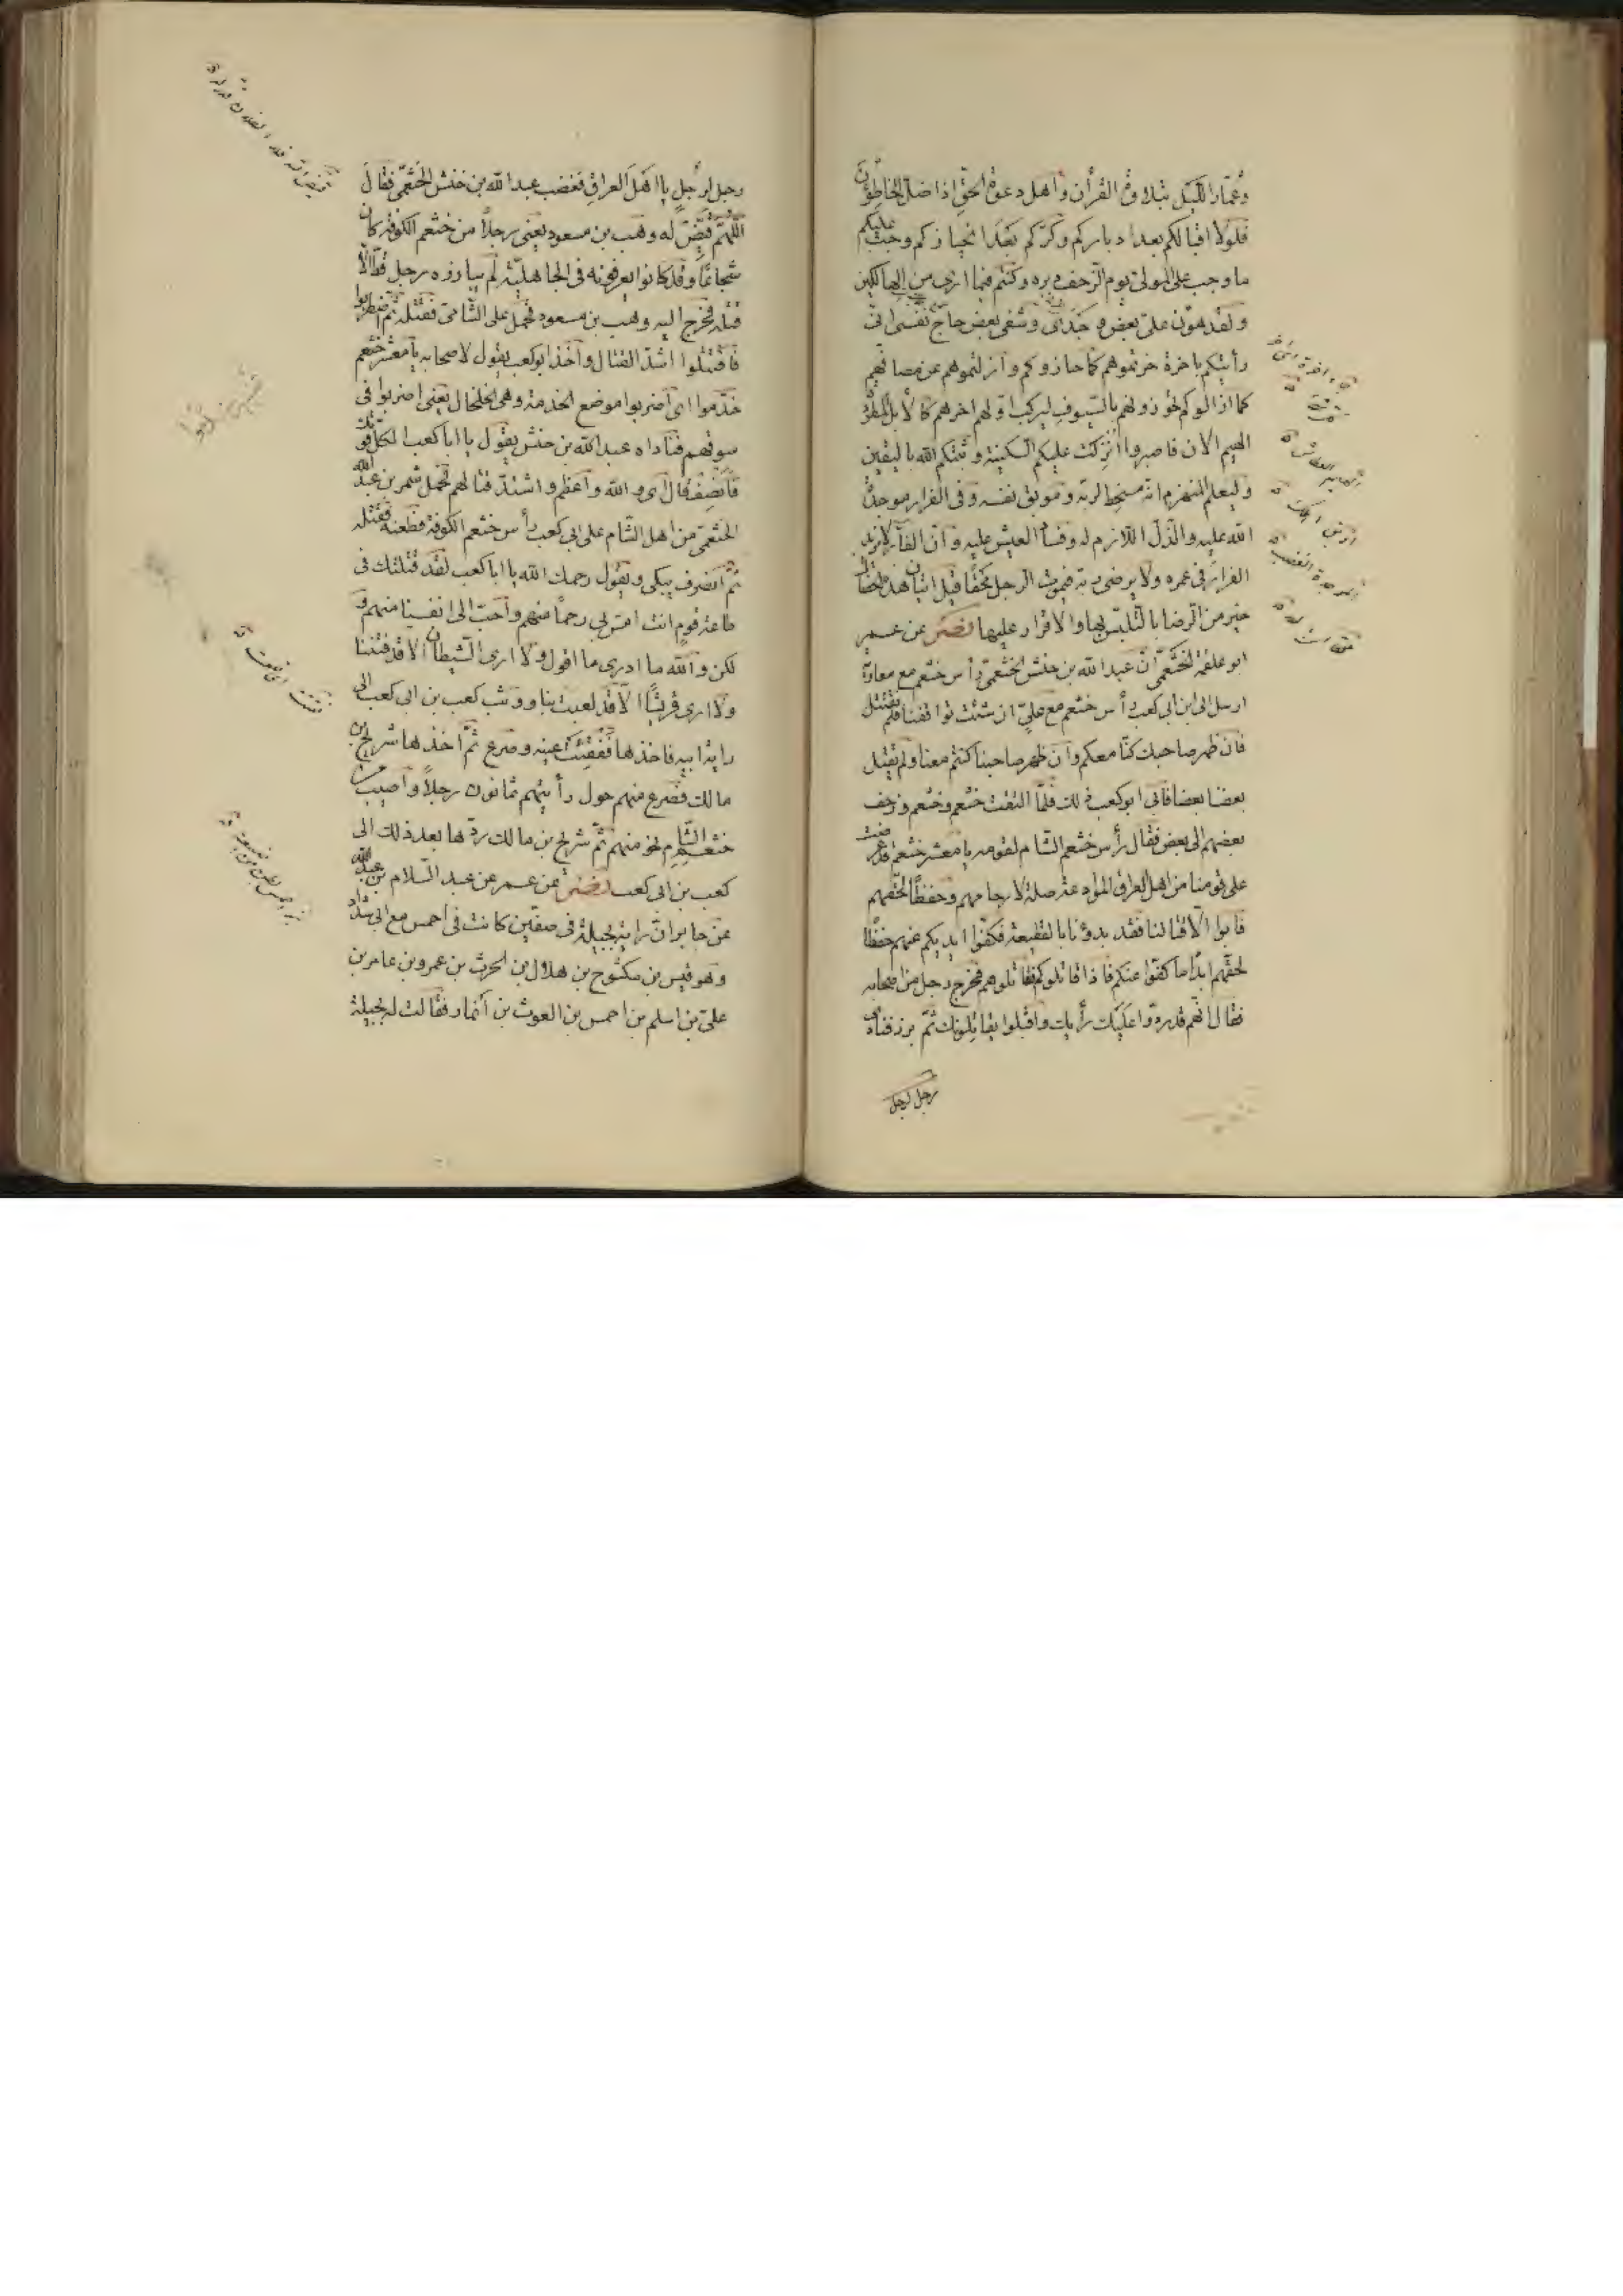 وعمّار الليل بتلاوة القرأن واهل دعوة الحقّ اذا ضلّ الخاطئون
فلولا اقبالكم بعد ادباركم وكرّكم بعد انحيازكم وجب عليكم
ما وجب على المولى يوم الزحف دبره وكنتم فيما ارى من الهالكين
ولقد هوّن علىّ بعض وجدى وشفى بعض حاج نفسى انّى
رأيتكم باخرة حزتموهم كما حازوكم وازلتموهم عن مصافهم
كما ازالوكم تحوزونهم بالسيوف ليركب اوّلهم اخرهم كالابل المطرّدة
الهيم الان فاصبروا انزلت عليكم السكينة وثبتكم الله باليقين
وليعلم المنهزم انّه مسخط لربّه وموبق نفسه وفى الفرار موجدة
الله عليه والذلّ اللازم له وفساد العيش عليه وانّ الفارّ لا يزيد
الفرار فى عمره ولا يرضى ربّه فيموت الرجل محقّا قبل اتيان هذه الخصال
خير من الرضا بالتلبّس بها والاقرار عليها نصر عن عمر
ابو علقمة الخثعمى انّ عبد الله بن حنش الخثعمى رأس خثعم مع معاوية
ارسل الى ابى كعب رأس خثعم مع علىّ ان شئت تواقفنا فلم نقتتل
فان ظهر صاحبك كنّا معكم وان ظهر صاحبنا كنتم معنا ولم يقتل
بعضنا بعضا فابى ابو كعب ذلك فلمّا التقت خثعم وخثعم وزحف
بعضهم الى بعض فقال رأس خثعم الشام لقومه يا معشر خثعم قد عرضت
على قومنا من اهل العراق الموادعة صلة لارحامهم وحفظا لحقّهم
فابوا الّا قتالنا فقد بدؤنا بالقطيعة فكفّوا ايديكم عنهم حفظا
لحقّهم ابدا ما كفّوا عنكم فاذا قاتلوكم فقاتلوهم فخرج رجل من اصحابه
فقال انّهم قد ردّوا عليك رأيك واقبلوا يقاتلونك ثمّ برز فنادى
رجل لرجل
رجل لرجل يا اهل العراق فغضب عبد الله بن حنش الخثعمى فقال
اللهمّ قيّض له وهب بن مسعود يعنى رجلا من خثعم الكوفة كان
شجاعا وقد كانوا يعرفونه فى الجاهليّة لم يبارزه رجل قطّ الّا
قتله فخرج اليه وهب بن مسعود فحمل على الشامىّ فقتله ثمّ اضطربوا
فاقتتلوا اشدّ القتال واخذ ابو كعب يقول لاصحابه يا معشر خثعم
خدّموا اى اضربوا موضع الخدمة وهى الخلخال يعنى اضربوا فى
سوقهم فناداه عبد الله بن حنش يقول يا ابا كعب الكلّ قومك
فانصف قال اى والله واعظم واشتدّ قتالهم فحمل شمر بن عبد الله
الخثعمى من اهل الشام على ابى كعب رأس خثعم الكوفة فطعنه فقتله
ثمّ انصرف يبكى ويقول رحمك الله يا ابا كعب لقد قتلتك فى
طاعة قوم انت امسّ بى رحما منهم واحبّ الى نفسا منهم و
لكن والله ما ادرى ما اقول ولا ارى الشيطان الّا قد فتننا
ولا ارى قريشا الّا قد لعبت بنا ووثب كعب بن ابى كعب الى
راية ابيه فاخذها ففقئت عينه وصرع ثمّ اخذها شريح بن
مالك فصرع منهم حول رأيتهم ثمانون رجلا واصيب من
خثعم الشام نحو منهم ثمّ شريح بن مالك ردّها بعد ذلك الى
كعب بن ابى كعب نصر عن عمر عن عبد السلام بن عبد الله
عن جابر انّ راية بجيلة فى صفّين كانت فى احمس مع ابى شدّاد
وهو قيس بن مكشوح بن هلال بن الحرث بن عمرو بن عامر بن
على بن اسلم بن احمس بن الغوث بن أنمار فقالت له بجيلة